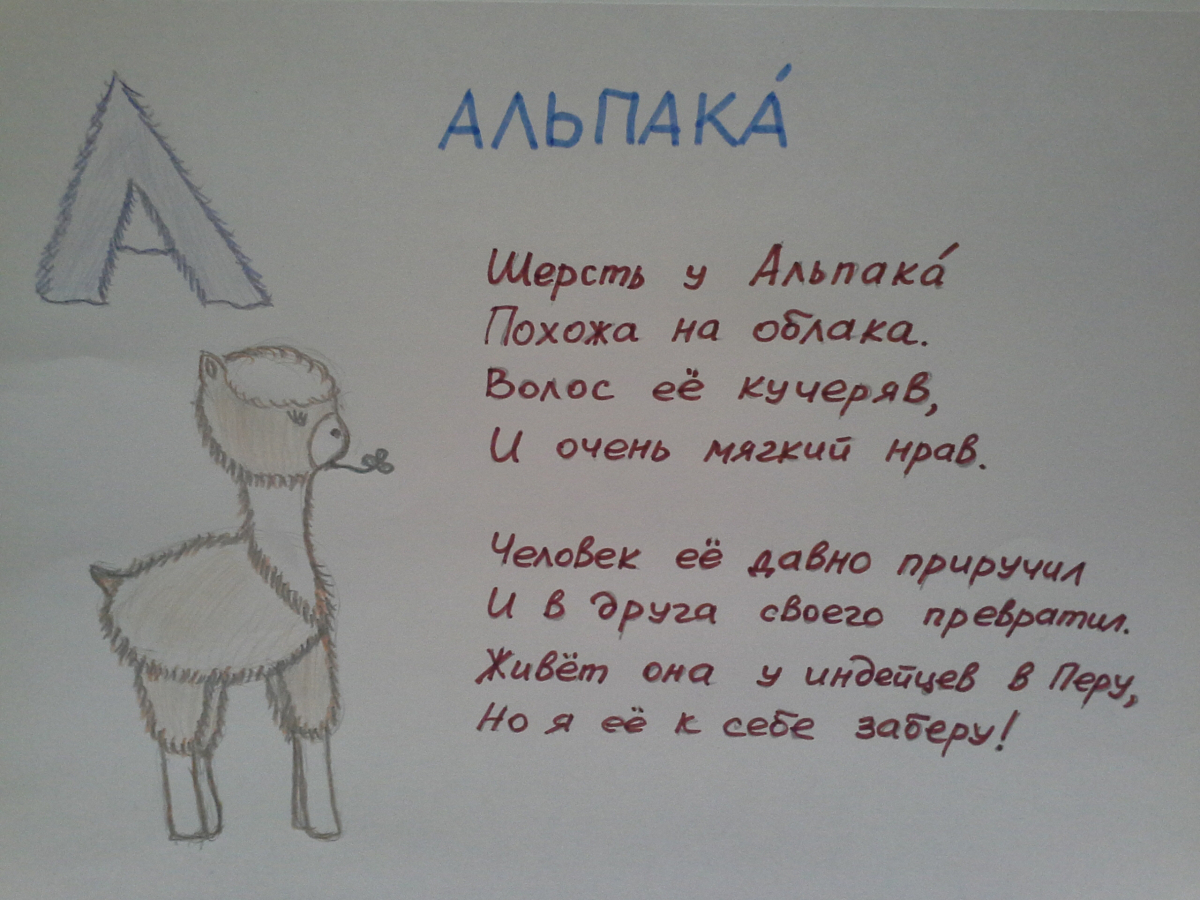 А
АЛЬПАКА́
Шерсть у Альпака́
Похожа на облака.
Волос её кучеряв,
И очень мягкий нрав.
Человек её давно приручил
И в друга своего превратил.
Живёт она у индейцев в Перу,
Но я её к себе заберу!